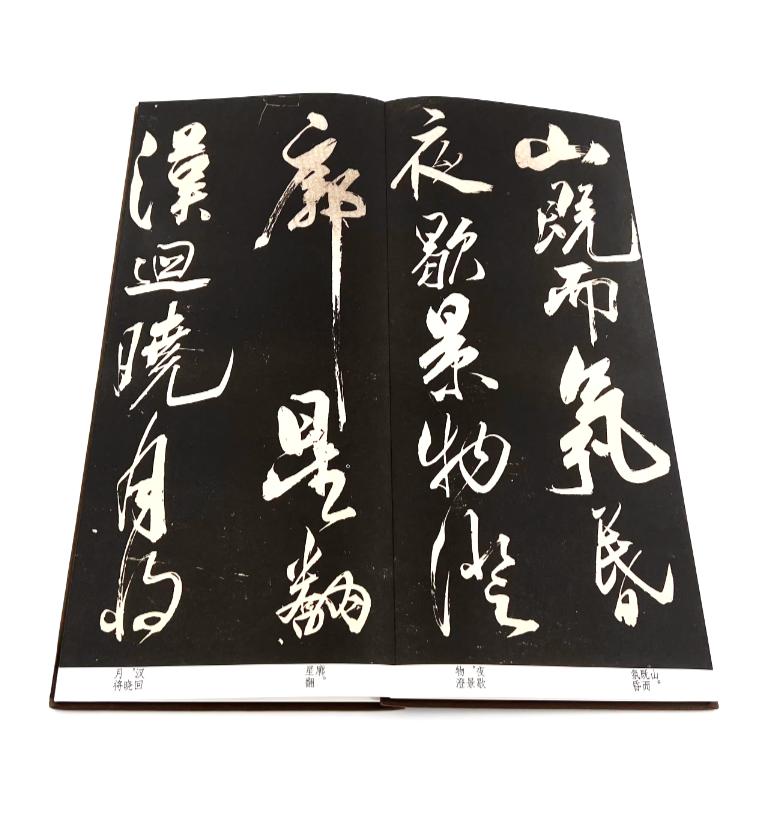 山既而氛昏
夜歇景物澄
廓星翻
漢迴曉月將
山。既而氛昏
夜歇，景物澄
廓。星翻
汉回，晓月将